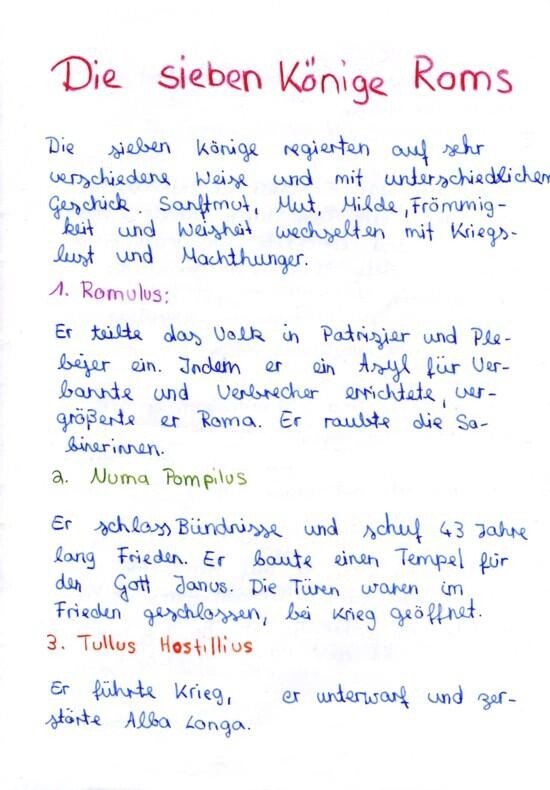 Die sieben Könige Roms
Die sieben Könige regierten auf sehr
verschiedene Weise und mit unterschiedlichem
Geschick. Sanftmut, Mut, Milde, Frömmig-
keit und Weisheit wechselten mit Kriegs-
lust und Machthunger.
1. Romulus:
Er teilte das Volk in Patrizier und Ple-
bejer ein. Indem er ein Asyl für Ver-
bannte und Verbrecher errichtete, ver-
größerte er Roma. Er raubte die Sa-
binerinnen.
2. Numa Pompilus
Er schloss Bündnisse und schuf 43 Jahre
lang Frieden. Er baute einen Tempel für
den Gott Janus. Die Türen waren im
Frieden geschlossen, bei Krieg geöffnet.
3. Tullus Hostillius
Er führte Krieg, er unterwarf und zer-
störte Alba Longa.